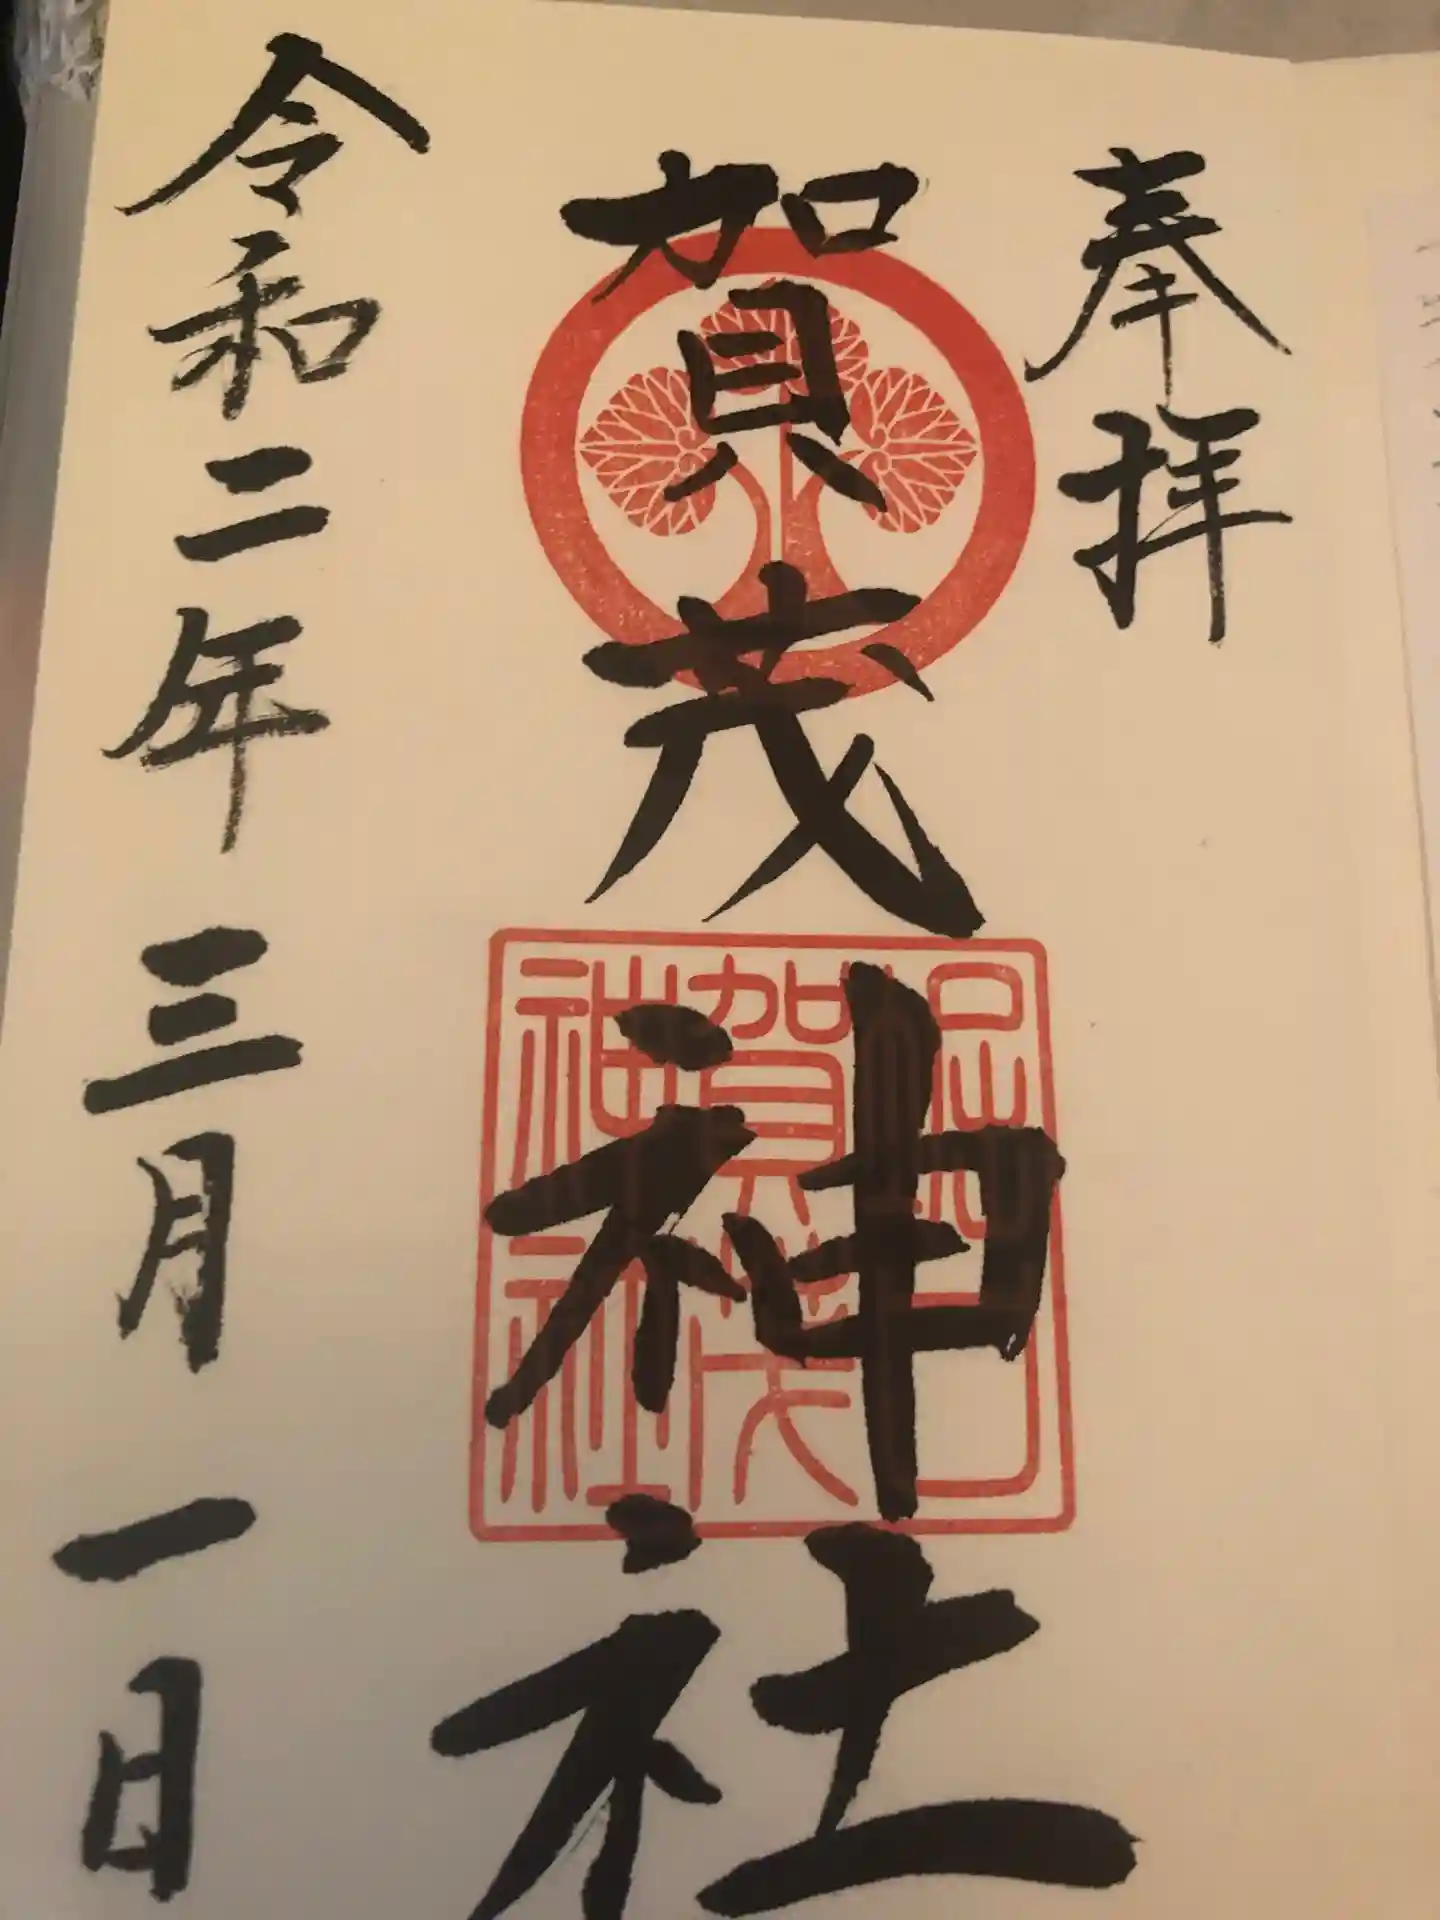 奉拝
賀茂神社
賀茂
神社
令和二年三月一日